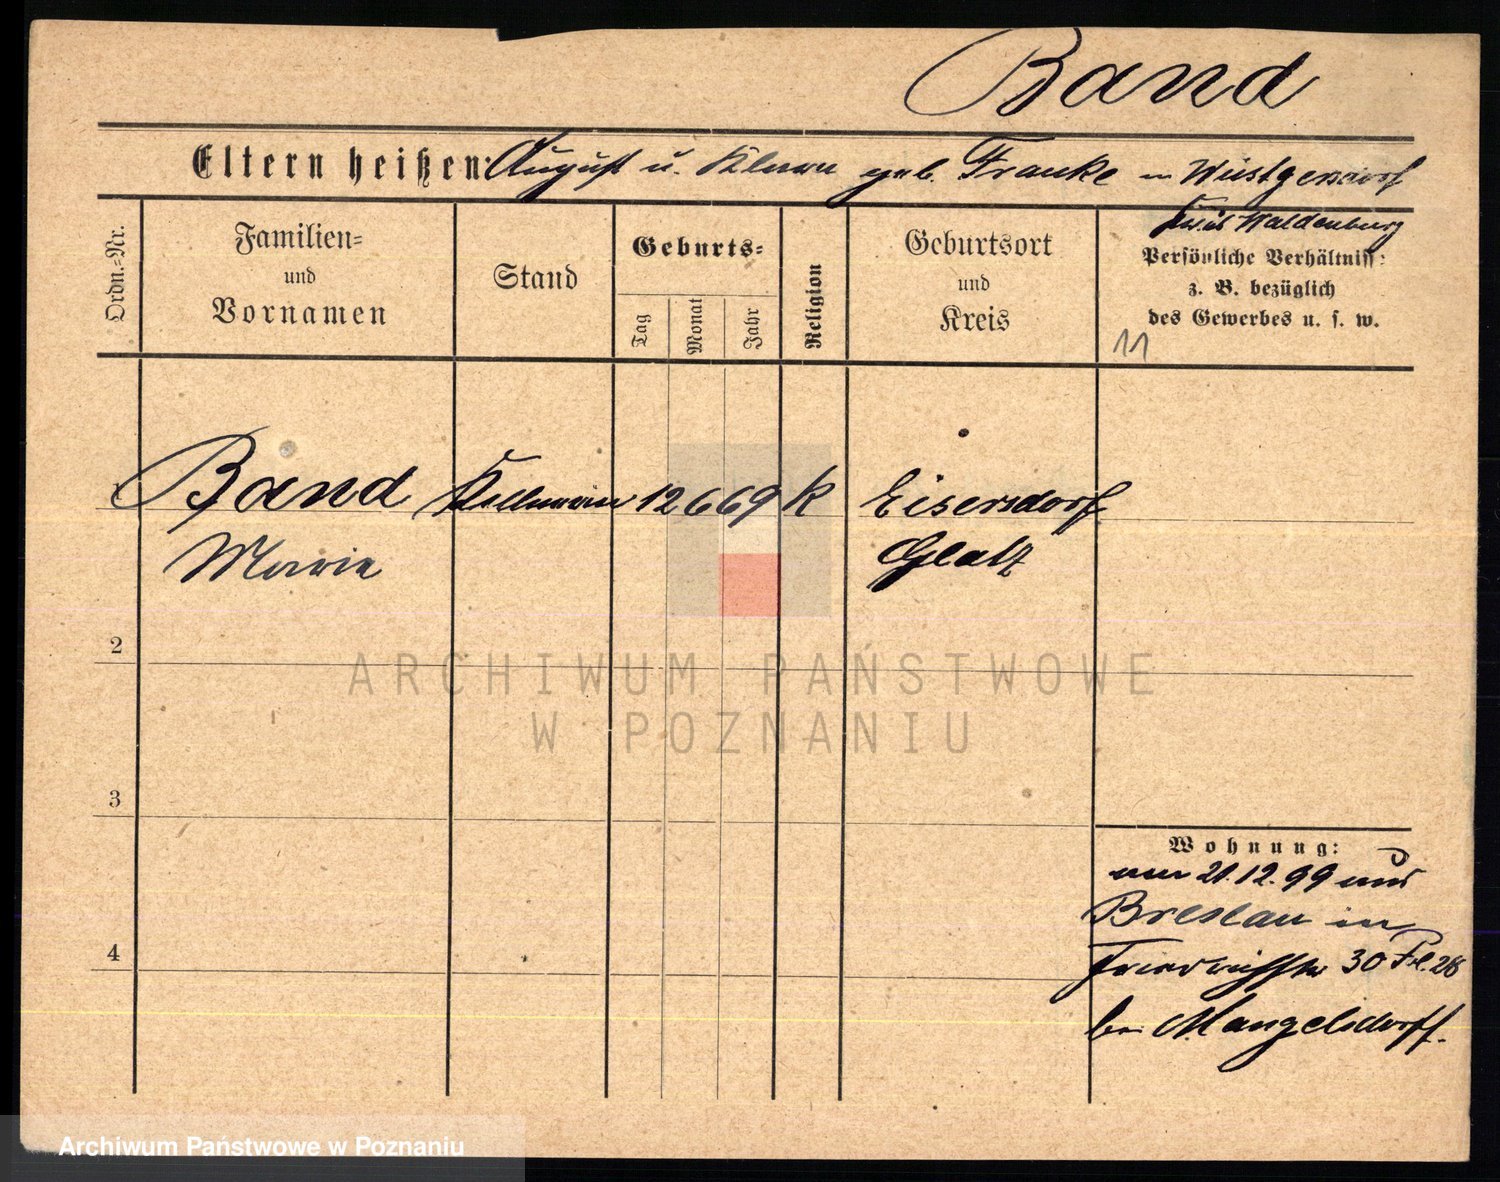 Band
Eltern heißen: August u. geb. Franke in Wüstgersdorf
Kreis Waldenburg
Ordn.-Nr.
Familien-
und
Vornamen
Stand
Geburts-
Tag
Monat
Jahr
Religion
Geburtsort
und
Kreis
Persönliche Verhältniss:
z. B. bezüglich
des Gewerbes u. s. w.
11
Band Kellnerin 12 6 69 k Eisersdorf
Marie Glatz
2
ARCHIWUM PAŃSTWOWE
W POZNANIU
3
Wohnung:
21.12.99 aus
Breslau in
Friedrichstr 30 28
bei Mangelsdorff.
4
Archiwum Państwowe w Poznaniu